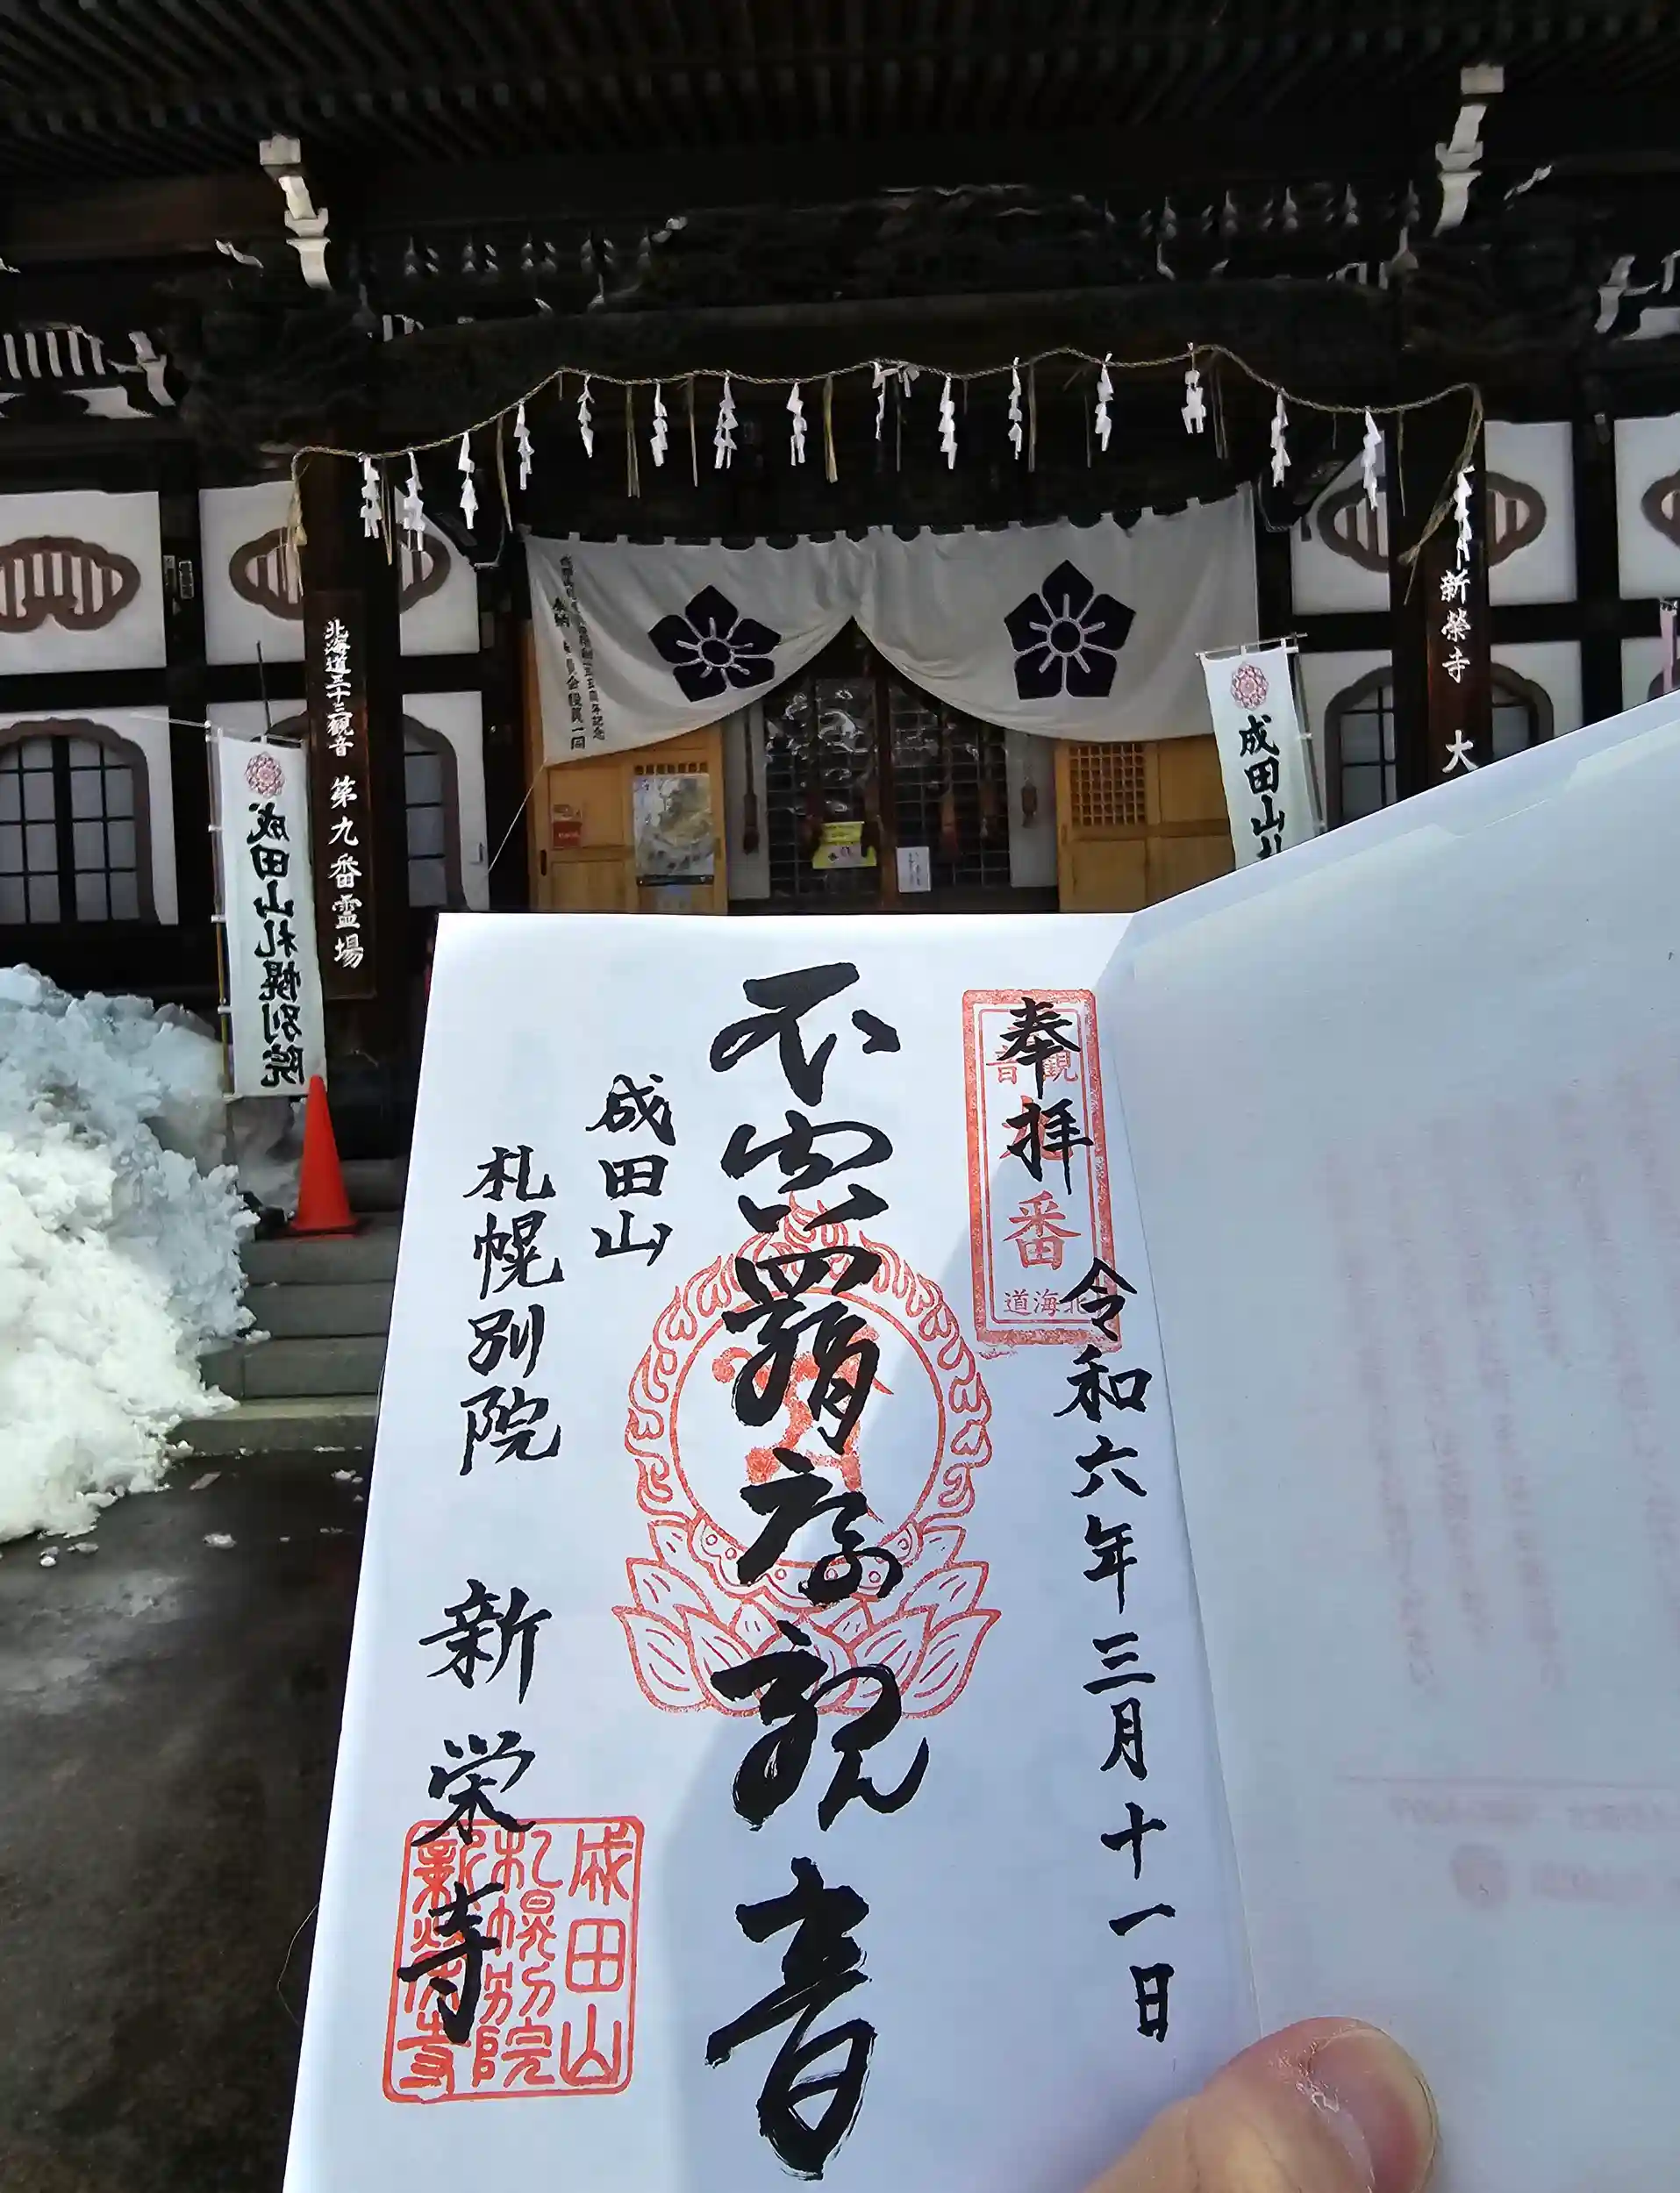 北海道三十三観音 第九番霊場
新榮寺 大
成田山札幌別院
成田山札
奉拝
観音
番
北海道
令和六年三月十一日
不空羂索観音
成田山
札幌別院
新栄寺
成田山
札幌別院
新栄寺